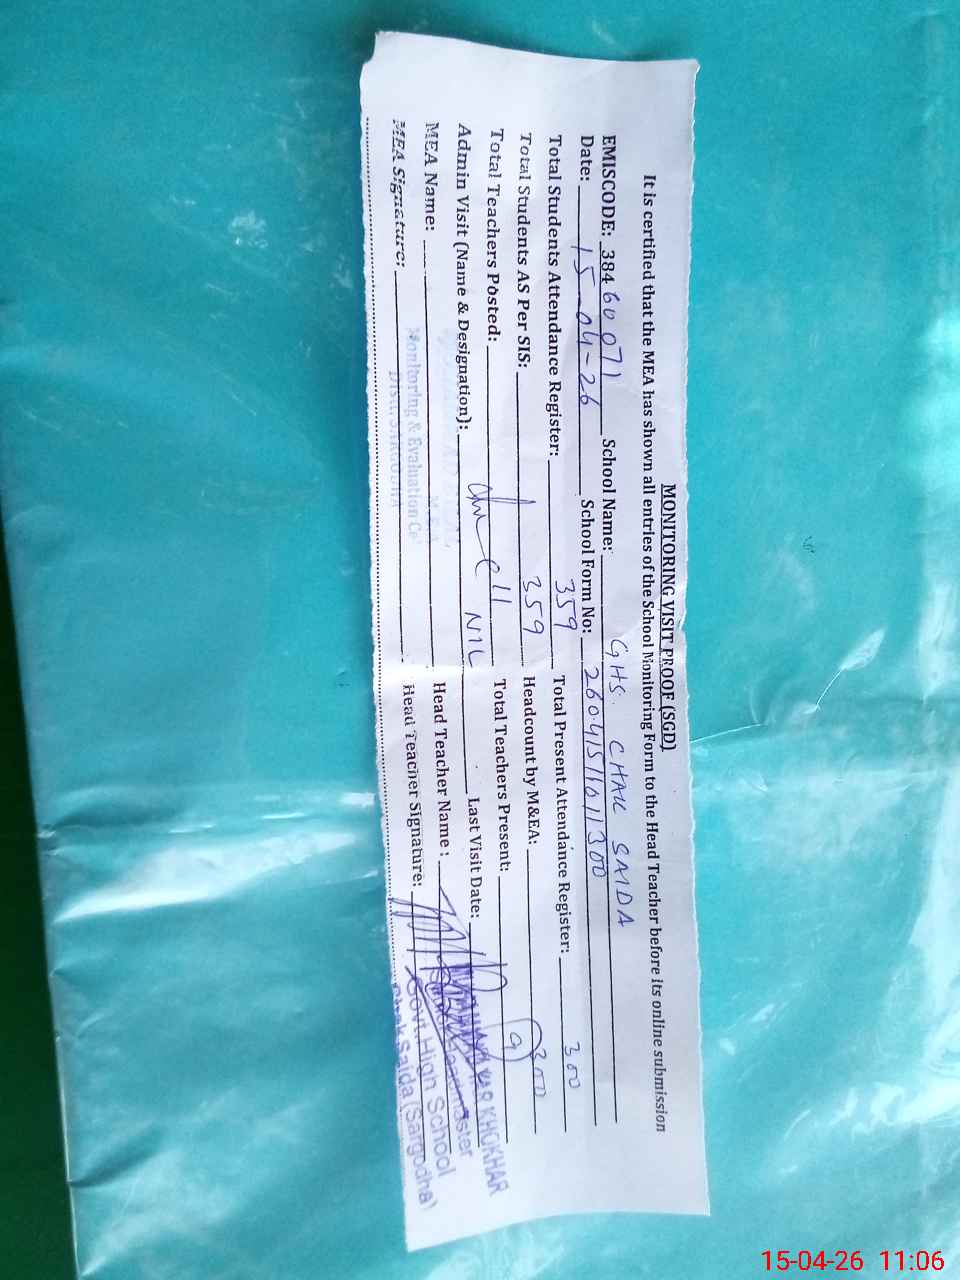 MONITORING VISIT PROOF (SGD)
It is certified that the MEA has shown all entries of the School Monitoring Form to the Head Teacher before its online submission
EMISCODE: 38460071 School Name: GHS. CHAK SAIDA
Date: 15-04-26 School Form No: 26041511011300
Total Students Attendance Register: 359 Total Present Attendance Register: 300
Total Students AS Per SIS: 359 Headcount by M&EA: 300
Total Teachers Posted: 11 Total Teachers Present: 9
Admin Visit (Name & Designation): NIL Last Visit Date:
MEA Name: Head Teacher Name :
MEA Signature: Head Teacher Signature:
M.E.A
Monitoring & Evaluation Cel
Distt. SARGODHA
KHOKHAR
Headmaster
Govt. High School
Chak Saida (Sargodha)
15-04-26 11:06